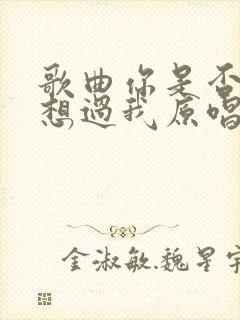 歌曲你是否
想過我原唱
金淑敏.魏星宇